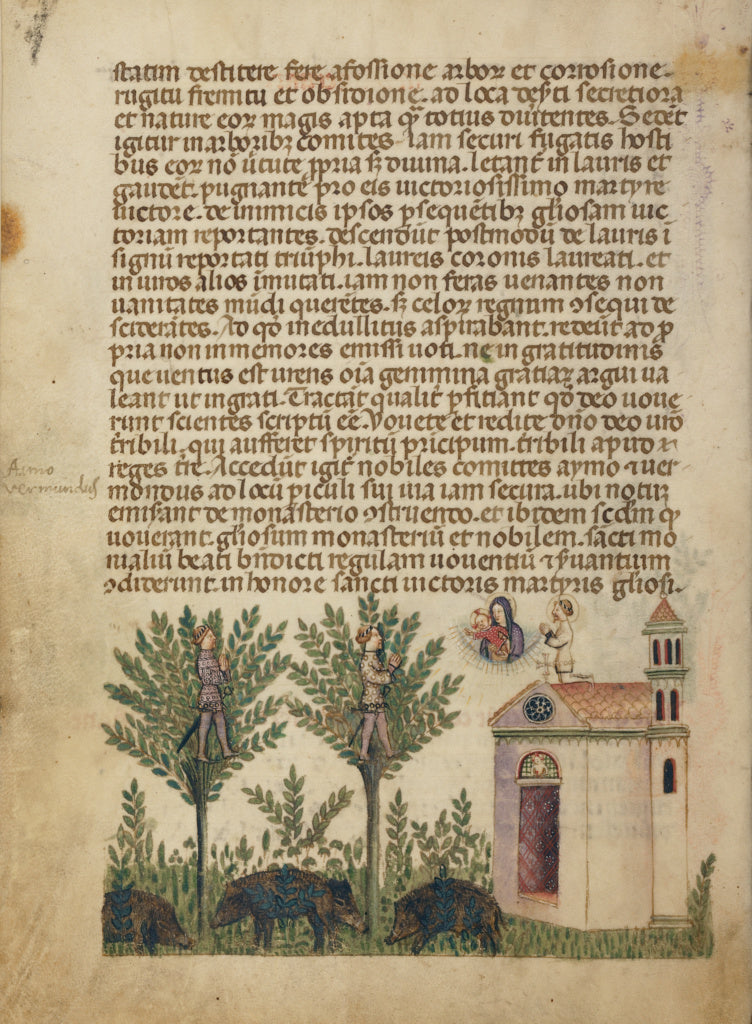 statim destitere fere. afossione arboꝝ et corrosione.
rugitu fremitu et obsidione. ad loca des̃ti secretiora
et nature eoꝝ magis apta qͣ totius diũtentes. Sedẽt
igitur in arboribꝫ comites. Iam securi fugatis hosti
bus eoꝝ nõ ũtute ꝓpria sꝫ diuina. letant̃ in lauris et
gaudẽt. pugnante pro eis uictoriosissimo martyre
uictore. de inimicis ipsos ꝑsequẽtibꝫ gliosam uic
toriam reportantes. descendũt postmodũ de lauris ĩ
signũ reportati triũphi. laureis coronis laureati. et
in uiros alios ĩmutati. iam non feras uenantes non
uanitates mũdi querẽtes. sꝫ celoꝝ regnum ꝯsequi de
sciderãtes. Ad qd̃ medullitus aspirabant. redeũt ad ꝓ
pria non inmemores emissi uoti. ne ingratitudinis
que uentus est urens oĩa gemmina gratiaꝝ argui ua
leant ut ingrati. Tractãt qualit̃ ꝑfitiant qd̃ deo uoue
runt scientes scriptũ eẽ. Vouete et redite dño deo ur̃o
t̃ribili. qui aufferet spiritũ pricipum. t̃ribili apud
reges tr̃e. Accedũt igit̃ nobiles comittes aymo ⁊ uer
mondus ad locũ ꝑiculi sui uia iam secura. ubi uotũ
emiserant de monasterio ꝯstruendo. et ibidem scd̃m qͣ
uouerant. gliosum monasteriũ et nobilem. sãcti mo
nialiũ beati bñdicti regulam uouentiũ ⁊ s̃uantium
ꝯdiderunt. in honore sancti uictoris martyris gliosi.
Aimo
vermundus